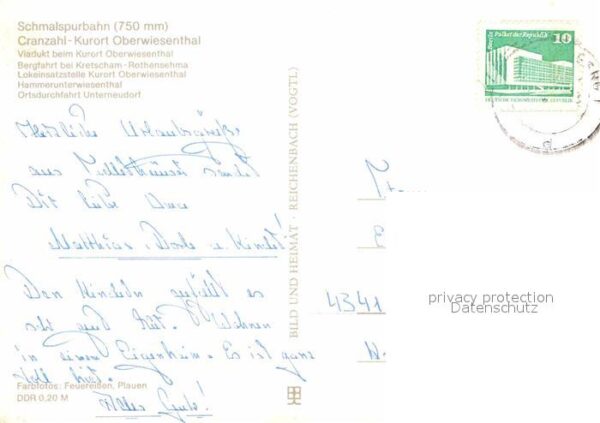 Schmalspurbahn (750 mm)
Cranzahl-Kurort Oberwiesenthal
Viadukt beim Kurort Oberwiesenthal
Bergfahrt bei Kretscham-Rothensehma
Lokeinsatzstelle Kurort Oberwiesenthal
Hammerunterwiesenthal
Ortsdurchfahrt Unterneudorf
Herzliche Urlaubsgrüße
aus sendet
Dir liebe Oma
Matthias, u. Kinder!
Den Kindeln gefällt es
sehr gut hier. Wohnen
in einem Eigenheim. Es ist ganz
toll hier.
Alles Gute!
Farbfotos: Feuereißen, Plauen
DDR 0,20 M
BILD UND HEIMAT · REICHENBACH (VOGTL)
Berlin, Palast der Republik
10
DEUTSCHE DEMOKRATISCHE REPUBLIK
4341
privacy protection
Datenschutz